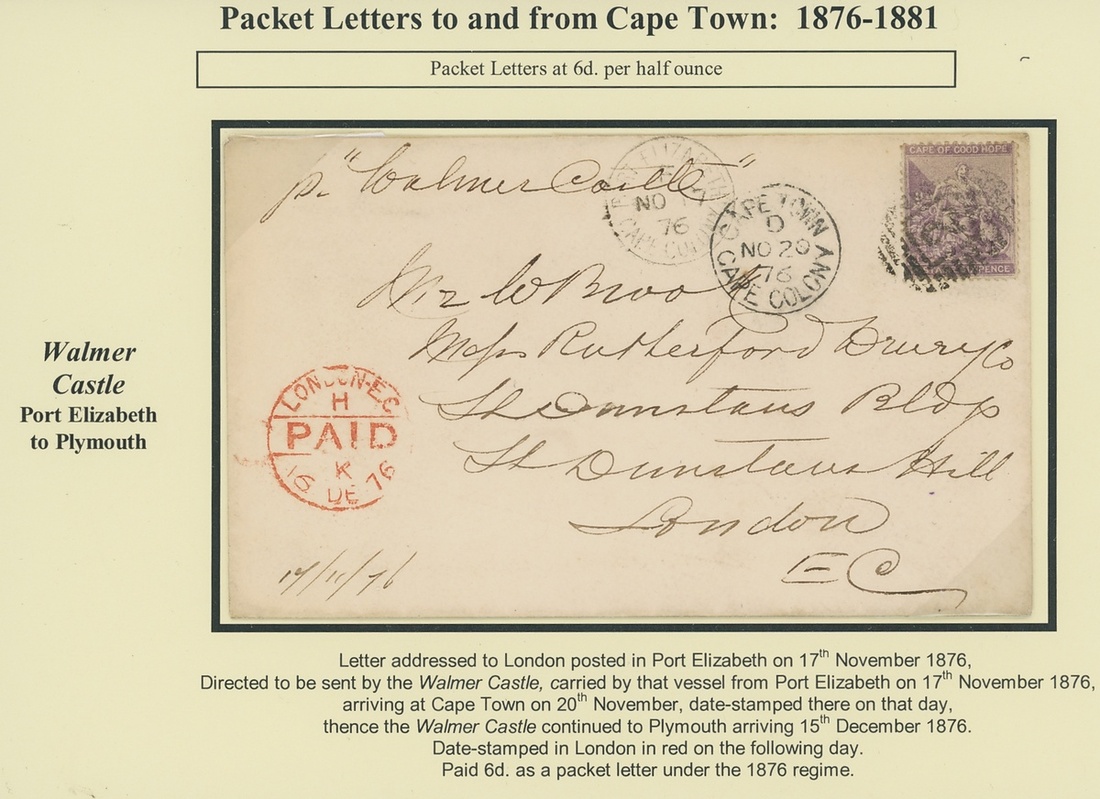 Packet Letters to and from Cape Town: 1876-1881
Packet Letters at 6d. per half ounce
p. "Walmer Castle"
PORT ELIZABETH
NO
76
CAPE COLONY
CAPE TOWN
D
NO 20
76
CAPE COLONY
CAPE OF GOOD HOPE
PENCE
Mr W Brook
Messrs Rutherford Drury Co
St Dunstans Bldp
St Dunstans Hill
London
E C
LONDON-E.C
H
PAID
K
16 DE 76
17/11/76
Walmer
Castle
Port Elizabeth
to Plymouth
Letter addressed to London posted in Port Elizabeth on 17th November 1876,
Directed to be sent by the Walmer Castle, carried by that vessel from Port Elizabeth on 17th November 1876,
arriving at Cape Town on 20th November, date-stamped there on that day,
thence the Walmer Castle continued to Plymouth arriving 15th December 1876.
Date-stamped in London in red on the following day.
Paid 6d. as a packet letter under the 1876 regime.